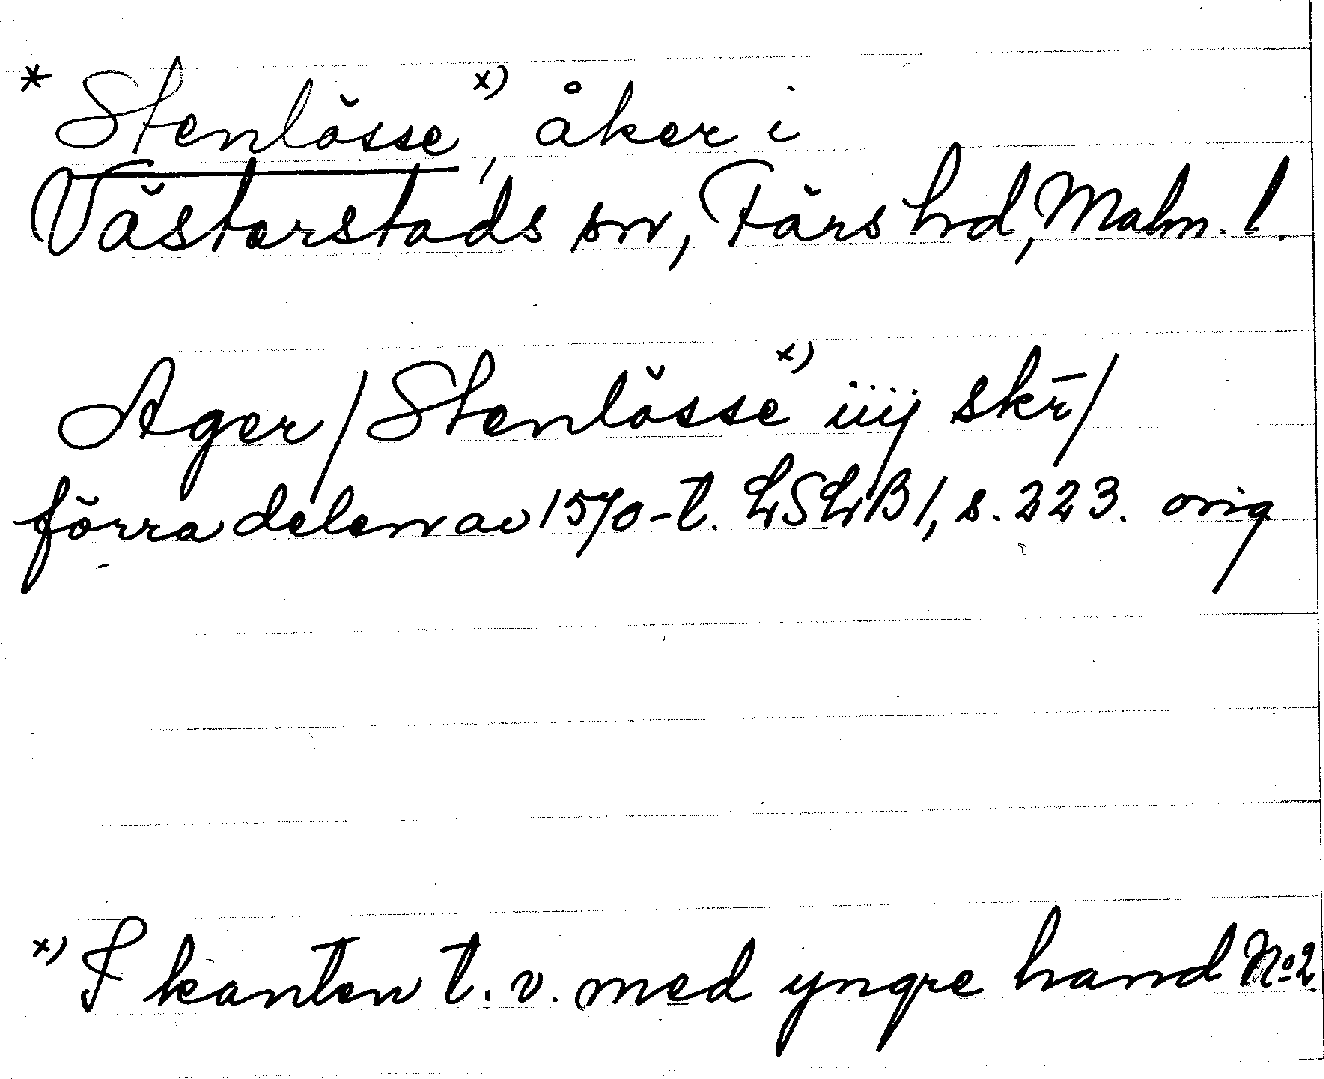 * Stenlösse x), åker i
Västerstads sn, Färs hd, Malm. l.
Ager / Stenlösse x) iiij skr̄ /
förra delen av 1570-t. LSLB 1, s. 223. orig
x) I kanten t. v. med yngre hand No 2